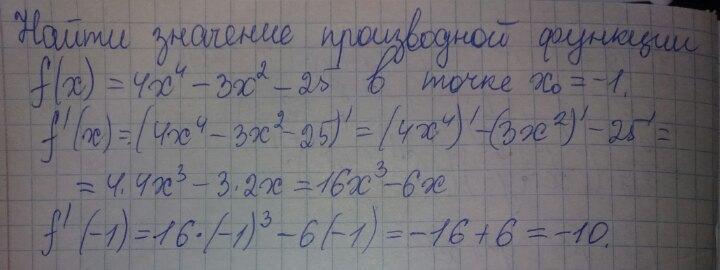 Найти значение производной функции
f(x) = 4x⁴ - 3x² - 25 в точке x₀ = -1.
f'(x) = (4x⁴ - 3x² - 25)' = (4x⁴)' - (3x²)' - 25' =
= 4·4x³ - 3·2x = 16x³ - 6x
f'(-1) = 16·(-1)³ - 6(-1) = -16 + 6 = -10.